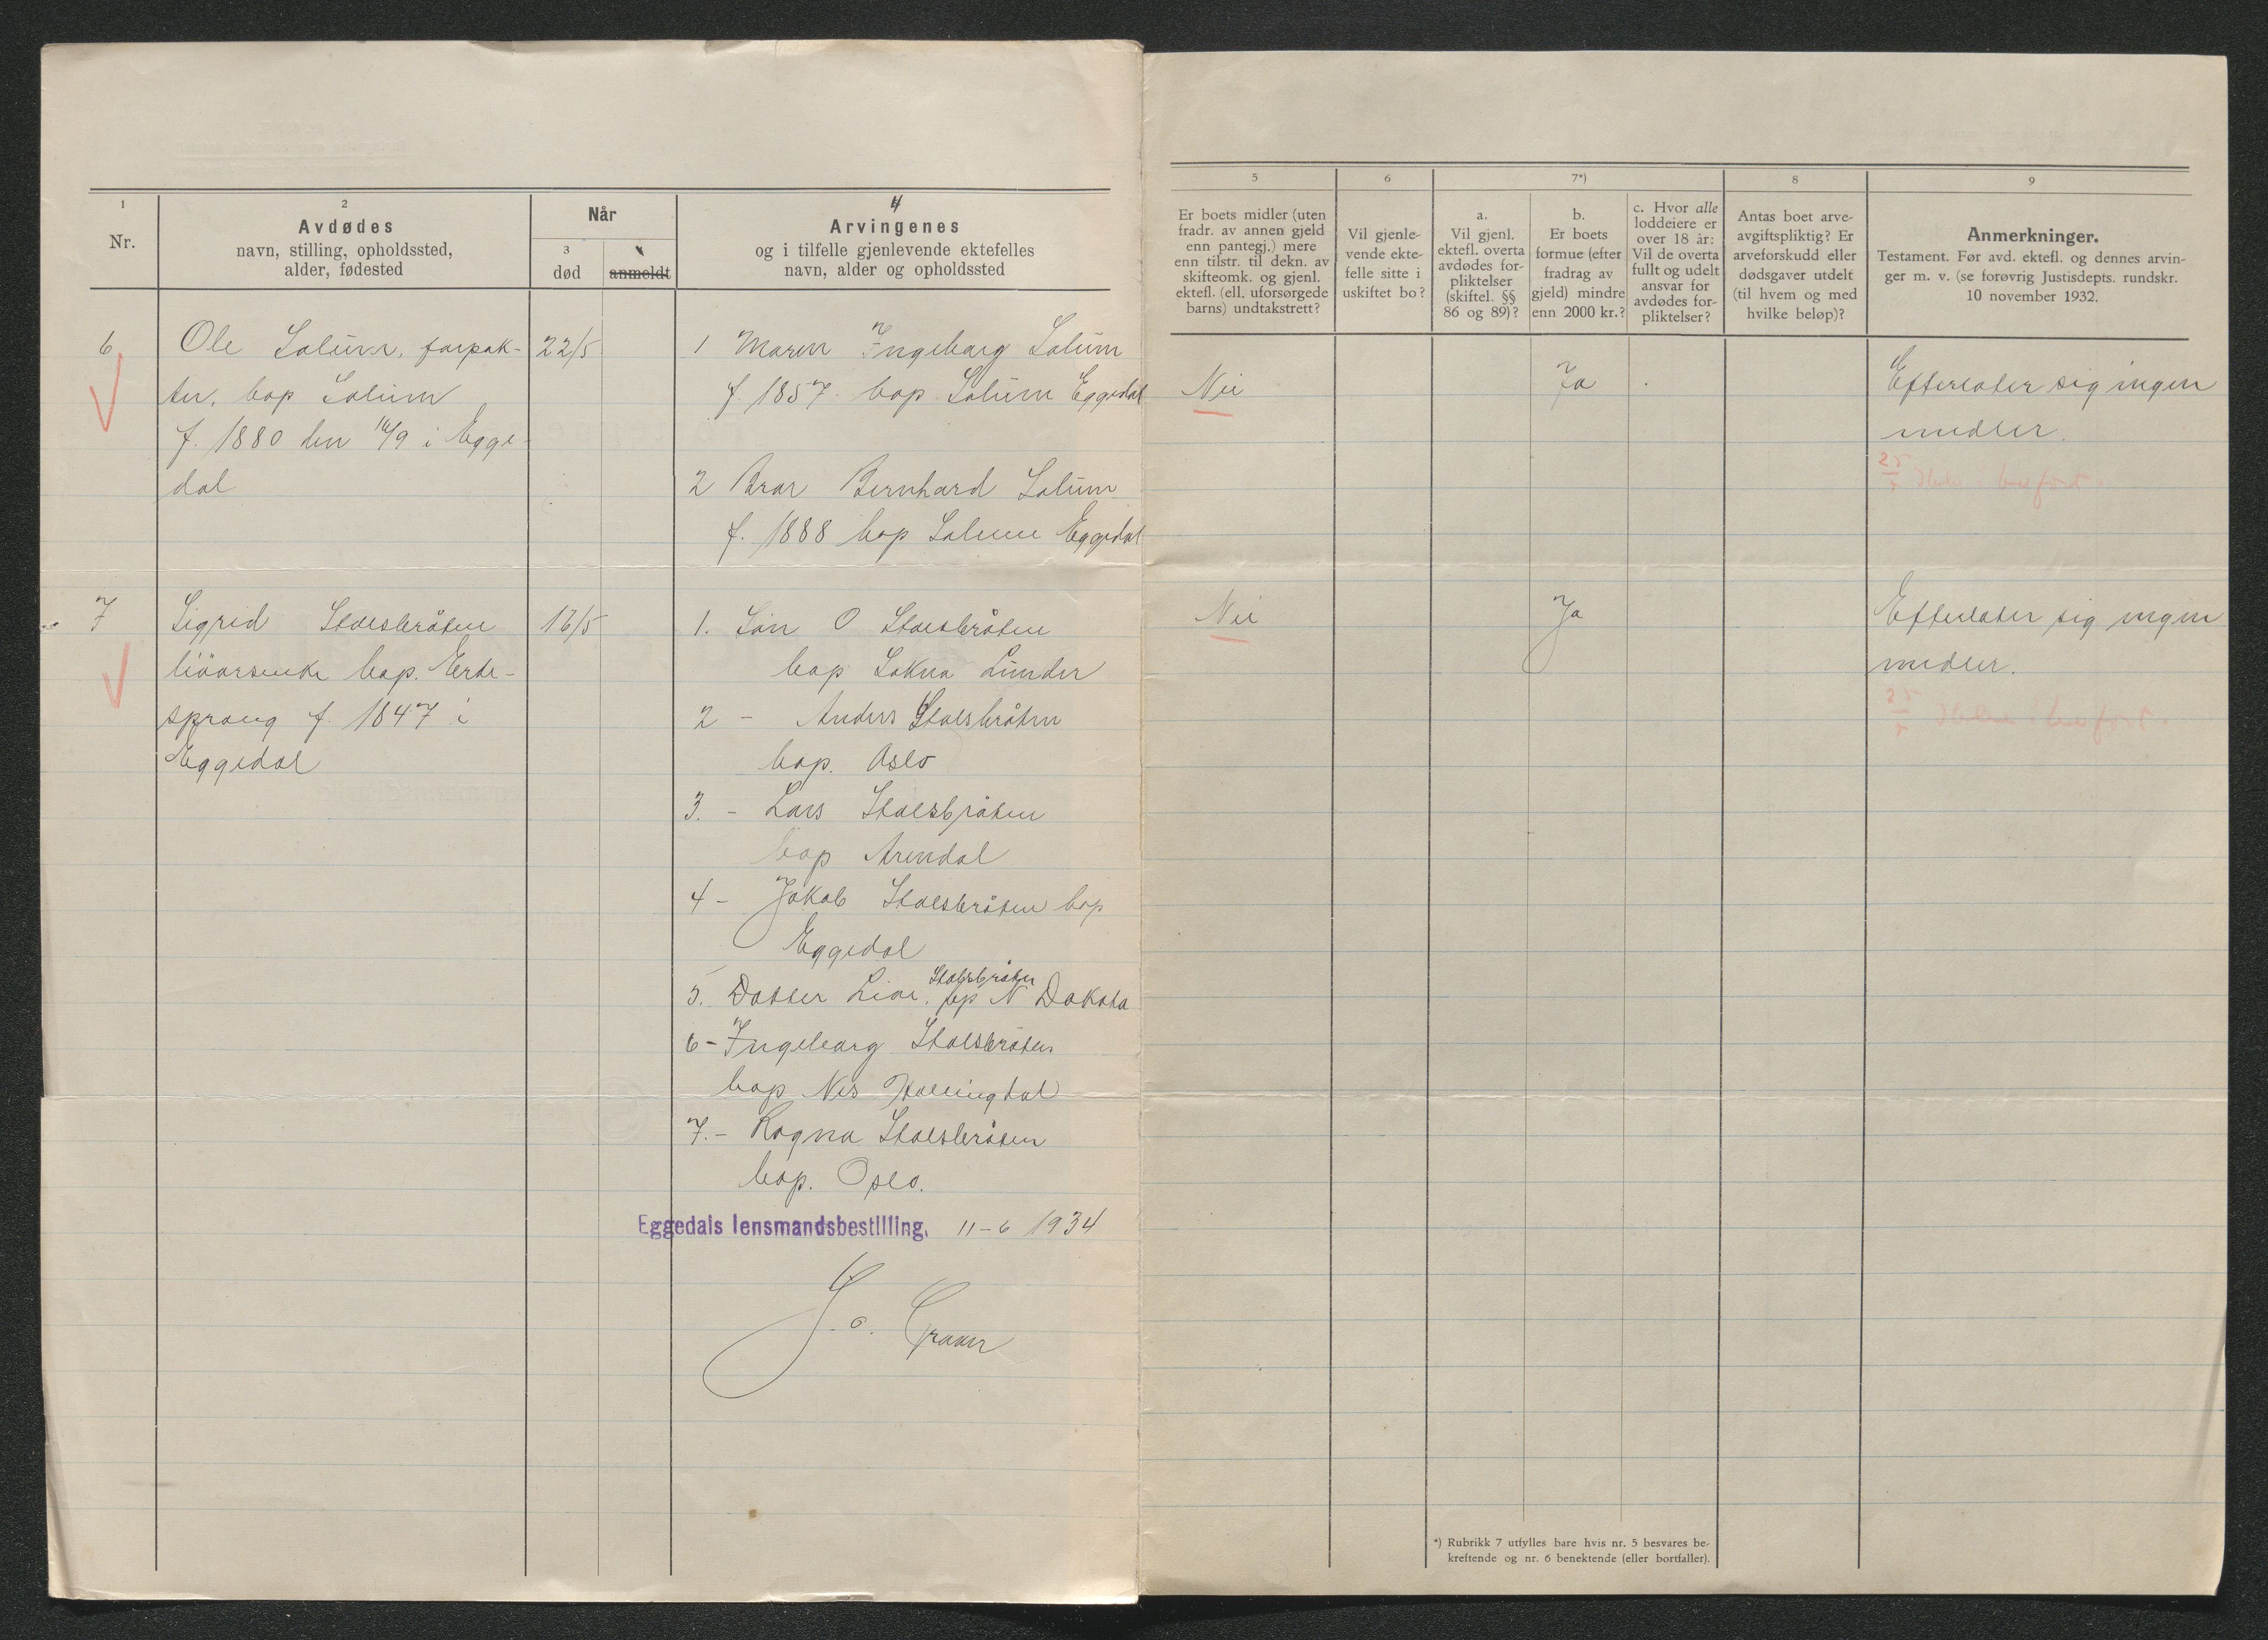 1
Nr.
2
Avdødes
navn, stilling, opholdssted,
alder, fødested
Når
3
død
anmeldt
4
Arvingenes
og i tilfelle gjenlevende ektefelles
navn, alder og opholdssted
5
Er boets midler (uten
fradr. av annen gjeld
enn pantegj.) mere
enn tilstr. til dekn. av
skifteomk. og gjenl.
ektefl. (ell. uforsørgede
barns) undtakstrett?
6
Vil gjenle-
vende ekte-
felle sitte i
uskiftet bo?
7*)
a.
Vil gjenl.
ektefl. overta
avdødes for-
pliktelser
(skiftel. §§
86 og 89)?
b.
Er boets
formue (efter
fradrag av
gjeld) mindre
enn 2000 kr.?
c. Hvor alle
loddeiere er
over 18 år:
Vil de overta
fullt og udelt
ansvar for
avdødes for-
pliktelser?
8
Antas boet arve-
avgiftspliktig? Er
arveforskudd eller
dødsgaver utdelt
(til hvem og med
hvilke beløp)?
9
Anmerkninger.
Testament. Før avd. ektefl. og dennes arvin-
ger m. v. (se forøvrig Justisdepts. rundskr.
10 november 1932.
6
Ole Solum, forpak-
ter, bop Solum
f. 1880 den 16/9 i Egge-
dal
22/5
1 Maren Ingeborg Solum
f. 1857. bop Solum Eggedal
2 Bror Bernhard Solum
f. 1888 bop Solum Eggedal
Nei
Ja
Efterlater sig ingen
midler.
25/5
7
Sigrid Stolsbråten
bop.
f. 1847 i
Eggedal
16/5
1. Søn O Stolsbråten
bop Sokna Lunder
2 - Anders Stolsbråten
bop. Oslo
3. - Lars Stolsbråten
bop Arendal
4 - Jakob Stolsbråten bop
Eggedal
5. Datter Liv. Stolsbråten bp N Dakota
6 - Ingeborg Stolsbråten
bop Nes Hallingdal
7. - Ragna Stolsbråten
bop. Oslo.
Nei
Ja
Efterlater sig ingen
midler.
Eggedals lensmandsbestilling, 11-6 1934
*) Rubrikk 7 utfylles bare hvis nr. 5 besvares be-
kreftende og nr. 6 benektende (eller bortfaller).